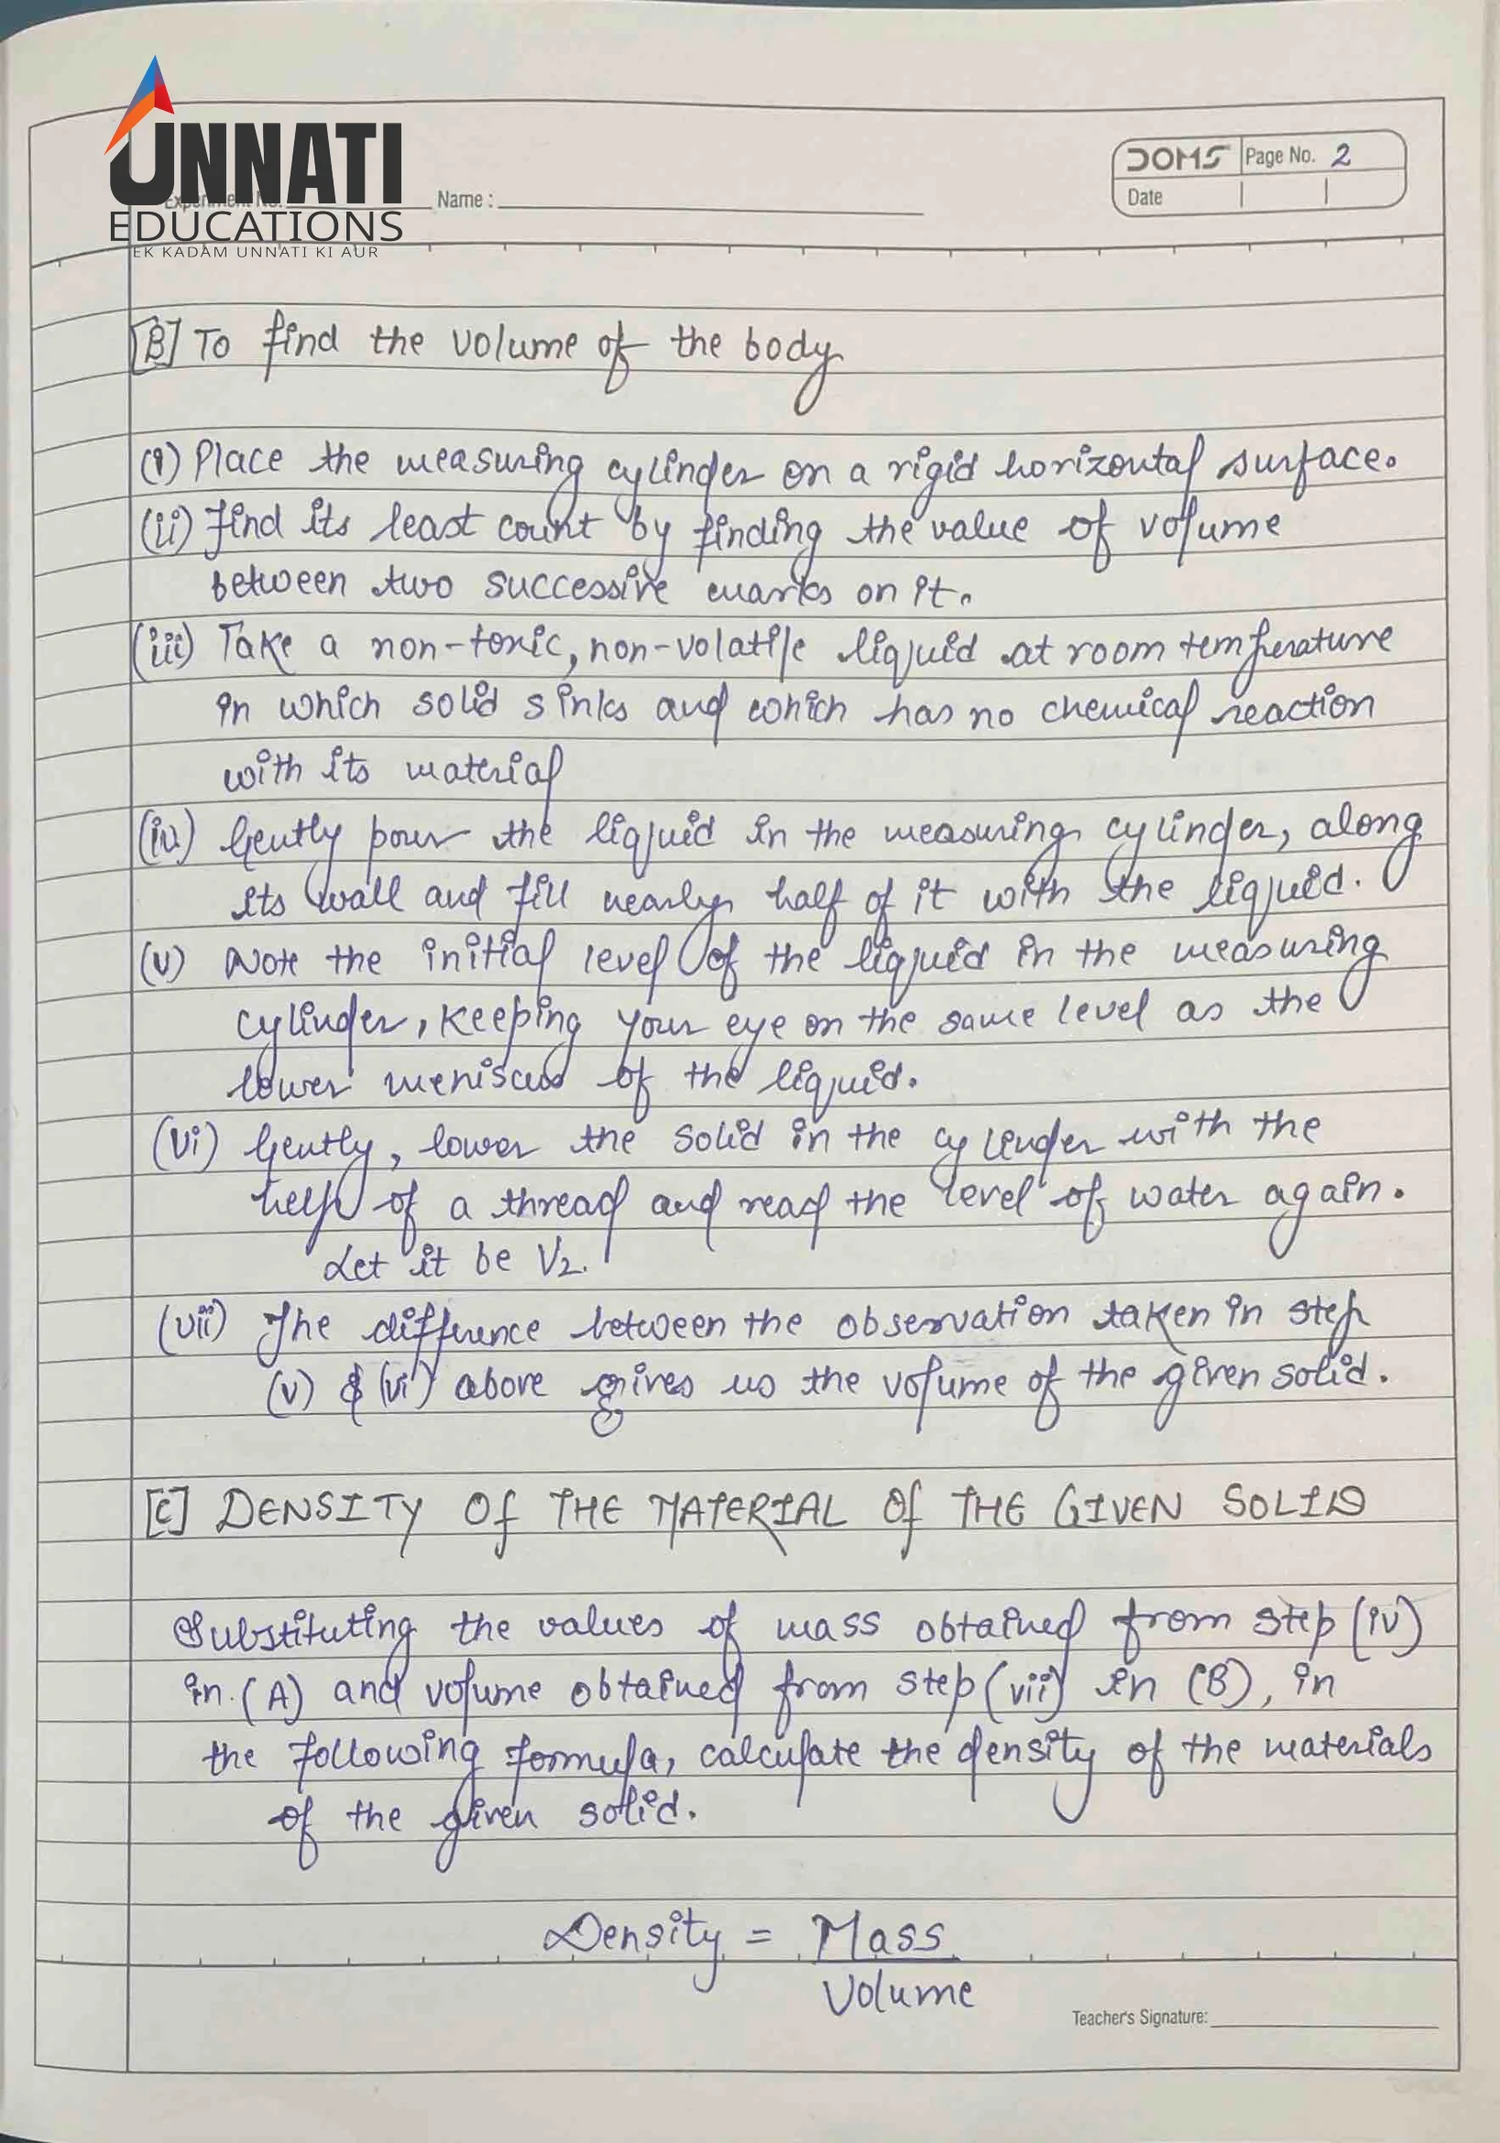 UNNATI
EDUCATIONS
EK KADAM UNNATI KI AUR
Experiment No. Name :
DOMS Page No. 2
Date
[B] To find the volume of the body
(i) Place the measuring cylinder on a rigid horizontal surface.
(ii) Find its least count by finding the value of volume
between two successive marks on it.
(iii) Take a non-toxic, non-volatile liquid at room temperature
in which solid sinks and which has no chemical reaction
with its material
(iv) Gently pour the liquid in the measuring cylinder, along
its wall and fill nearly half of it with the liquid.
(v) Note the initial level of the liquid in the measuring
cylinder, keeping your eye on the same level as the
lower meniscus of the liquid.
(vi) Gently, lower the solid in the cylinder with the
help of a thread and read the level of water again.
Let it be V2.
(vii) The difference between the observation taken in step
(v) & (vi) above gives us the volume of the given solid.
[C] DENSITY Of THE MATERIAL Of THE GIVEN SOLID
Substituting the values of mass obtained from step (iv)
in (A) and volume obtained from step (vii) in (B), in
the following formula, calculate the density of the materials
of the given solid.
Density = Mass
Volume
Teacher's Signature: